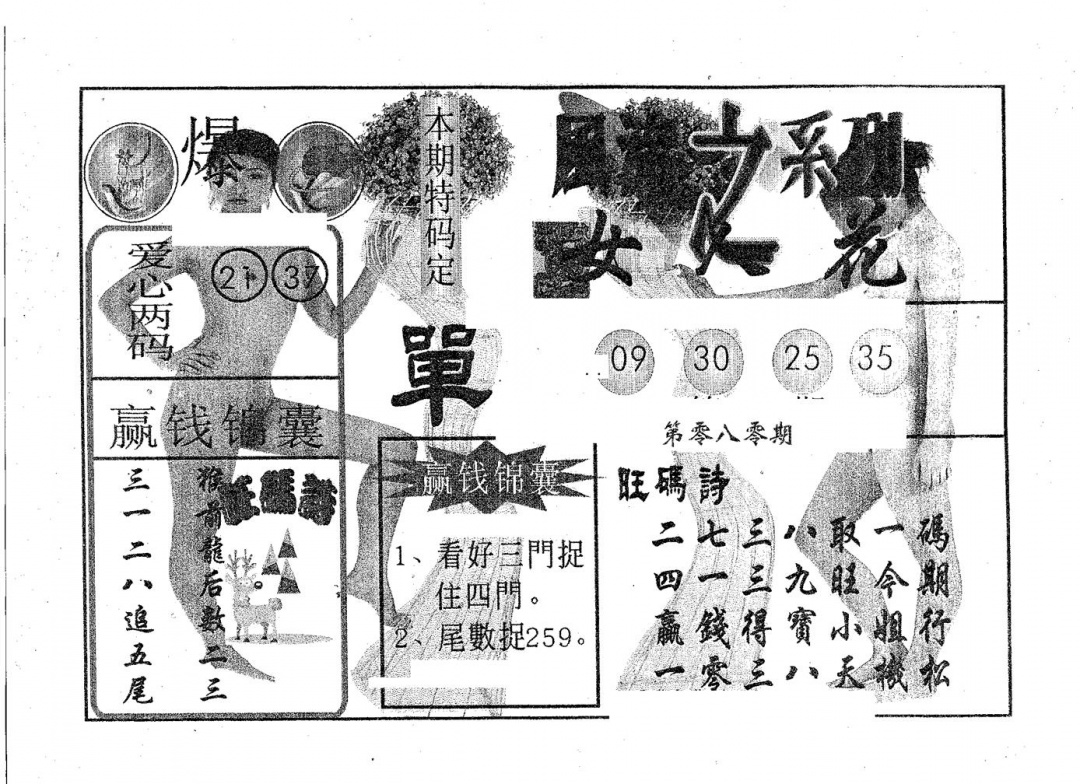 爆
本期特码定
單
之系列
女 花
爱心两码
21 37
09 30 25 35
第零八零期
赢钱锦囊
猴前龍后數二三
三一二八追五尾
旺碼詩
赢钱锦囊
1、看好三門捉
住四門。
2、尾數捉259。
旺碼詩
二七三八取一碼
四一三九旺今期
贏錢得寶小姐行
一零三八天機松